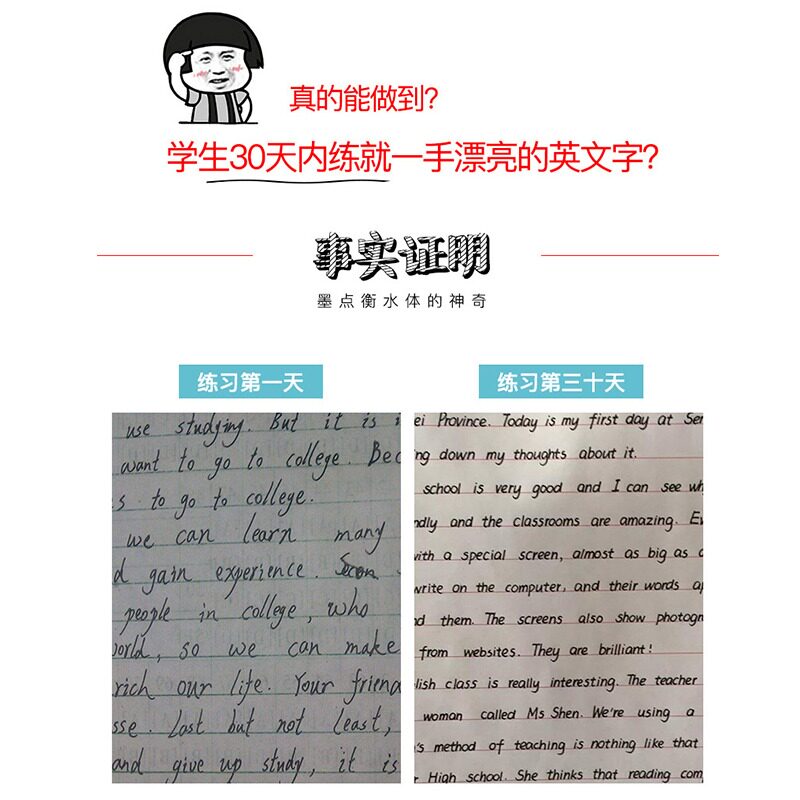 真的能做到?
学生30天内练就一手漂亮的英文字?
事实证明
墨点衡水体的神奇
练习第一天
use studying. But it is
want to go to college. Bec
s to go to college.
we can learn many
d gain experience. Secon
people in college, who
orld, so we can make
rich our life. Your friend
sse. Last but not least,
and give up study, it is
练习第三十天
ei Province. Today is my first day at Sen
ng down my thoughts about it.
school is very good and I can see wh
ndly and the classrooms are amazing. Ev
with a special screen, almost as big as
write on the computer, and their words ap
nd them. The screens also show photogr
from websites. They are brilliant!
lish class is really interesting. The teacher
woman called Ms Shen. We're using a
's method of teaching is nothing like that
r High school. She thinks that reading com